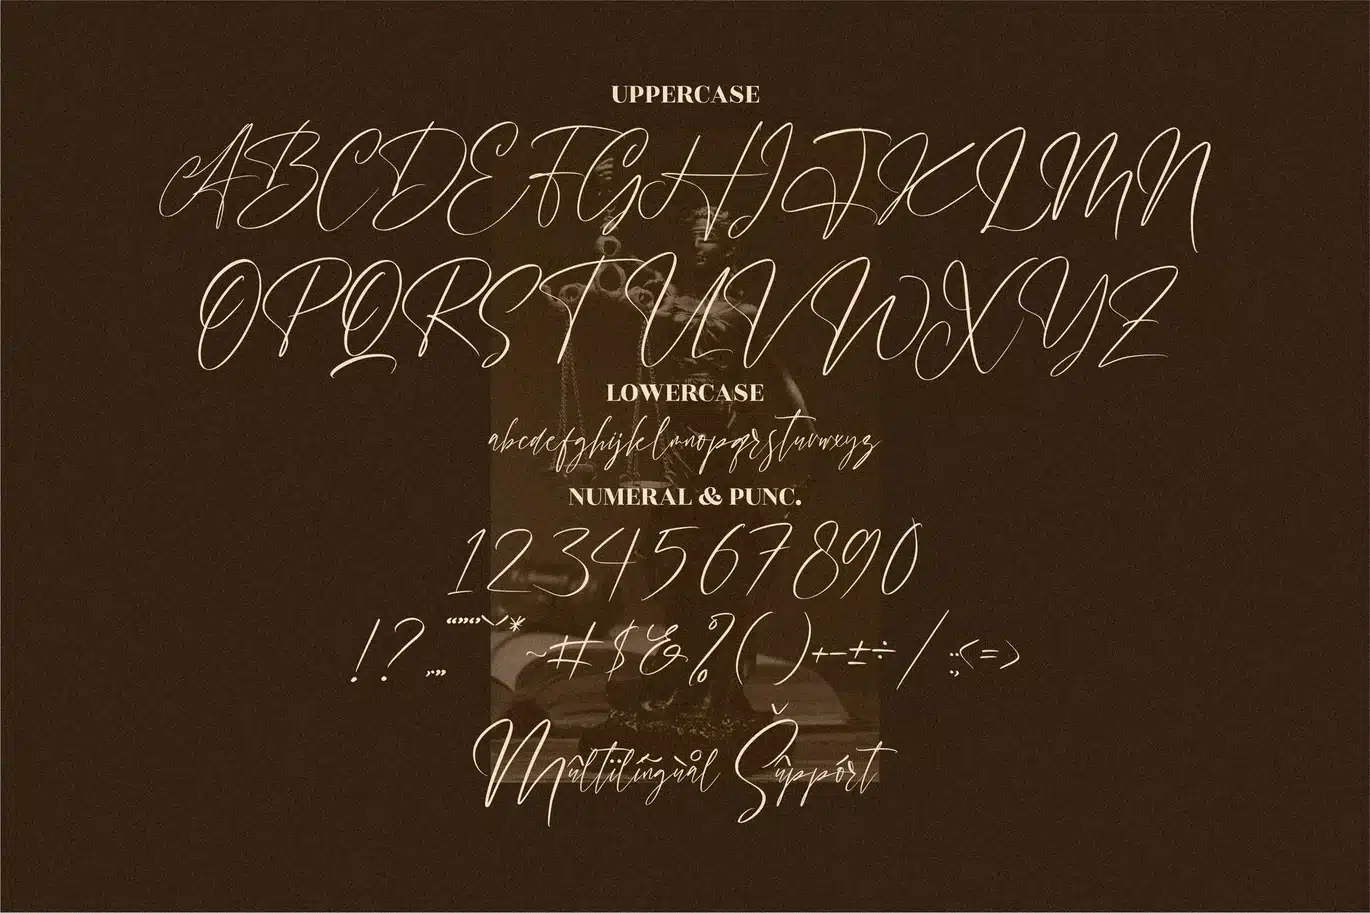 UPPERCASE
ABCDEFGHIJKLMN
OPQRSTUVWXYZ
LOWERCASE
abcdefghijklmnopqrstuvwxyz
NUMERAL & PUNC.
1234567890
!? * ~#$&%()+-±÷/:;<=>
Multilingual Support